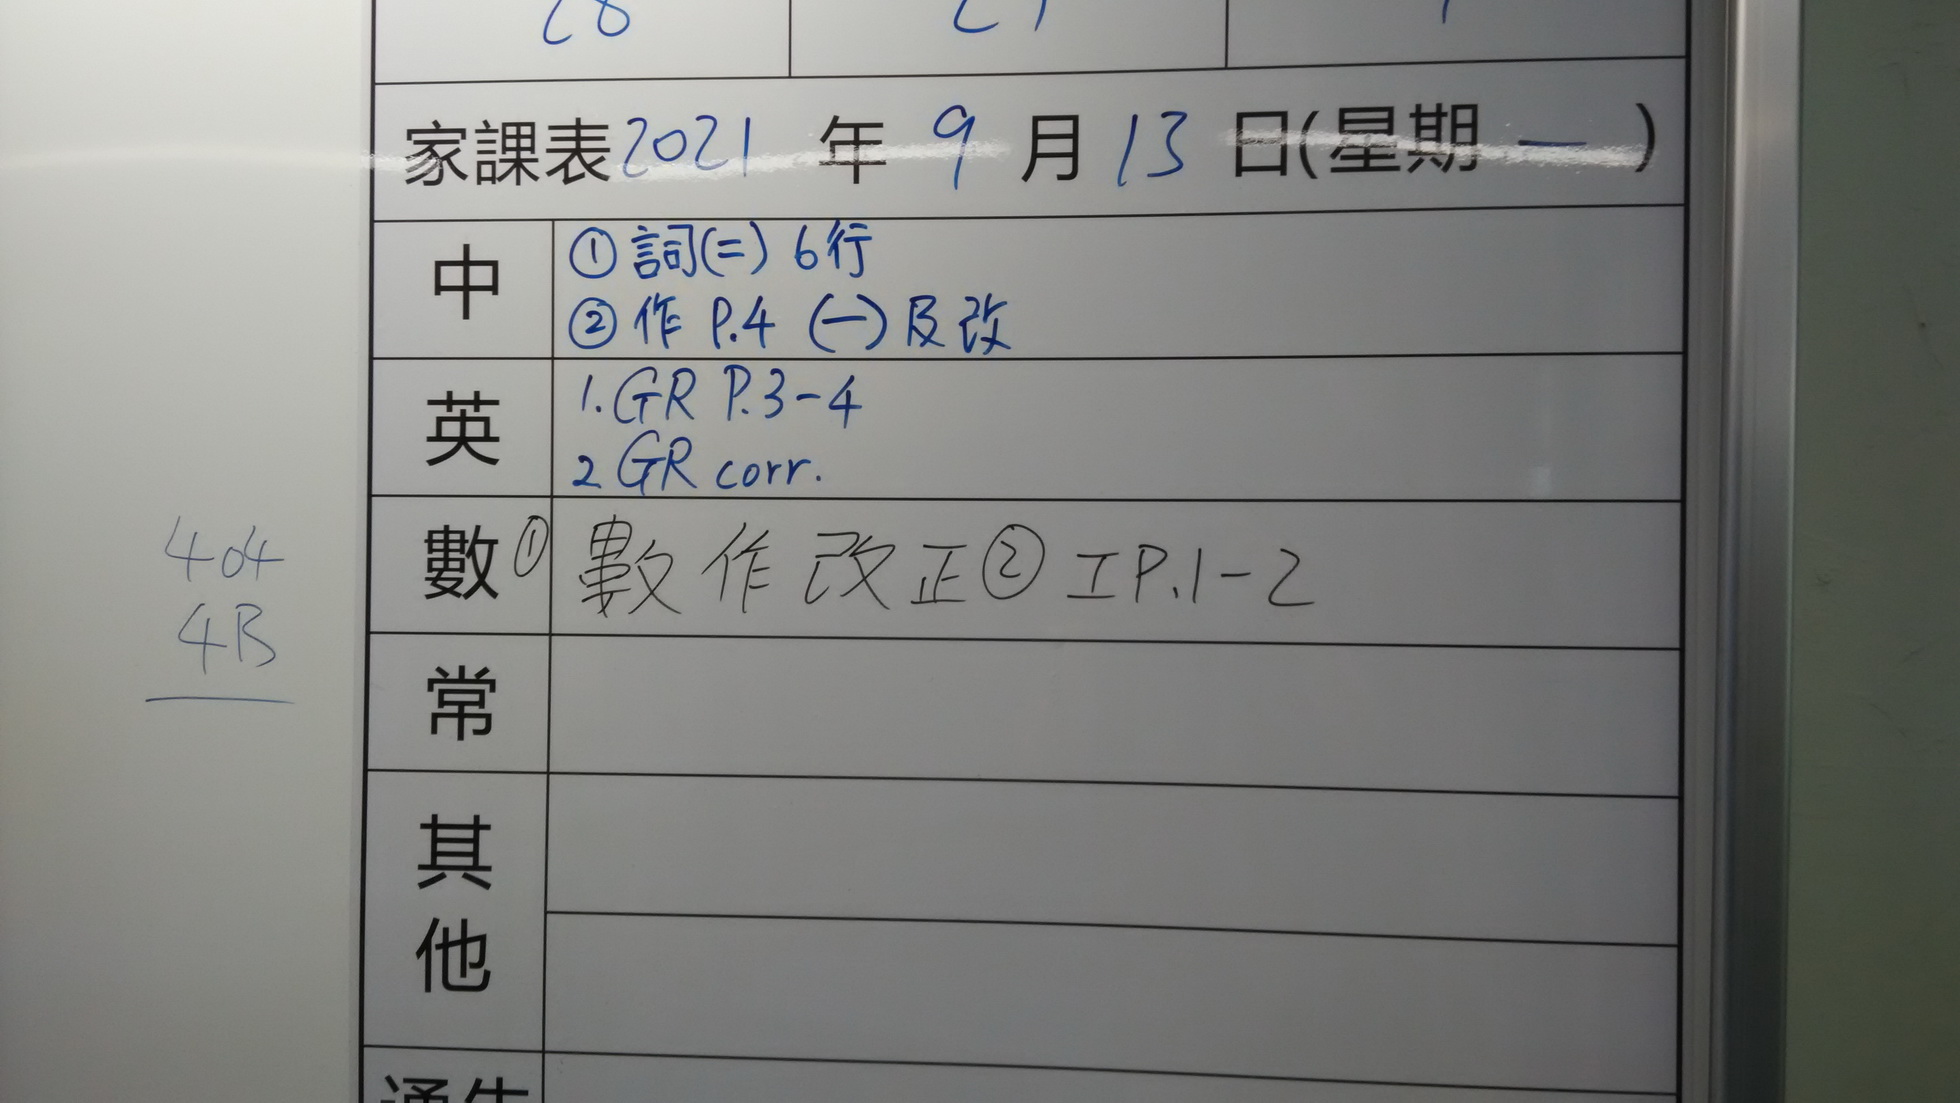 28
家課表2021年9月13日(星期一)
中
① 詞(二) 6行
② 作 P.4 (一)及改
英
1. GR P.3-4
2 GR corr.
數
① 數作改正 ② 工P.1-2
404
4B
常
其
他
通告